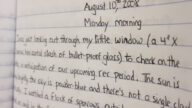 August 10th, 2008
Monday morning
was looking out through my little window (a 4" x
horizontal slash of bullet-proof glass) to check on the
in anticipation of our upcoming rec period. The sun is
the sky is powder-blue and there's not a single
I wanted a flock of sparrows